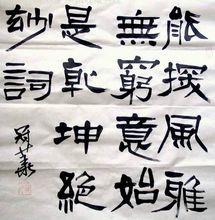 能探風雅
無窮意始
是乾坤絕
妙詞